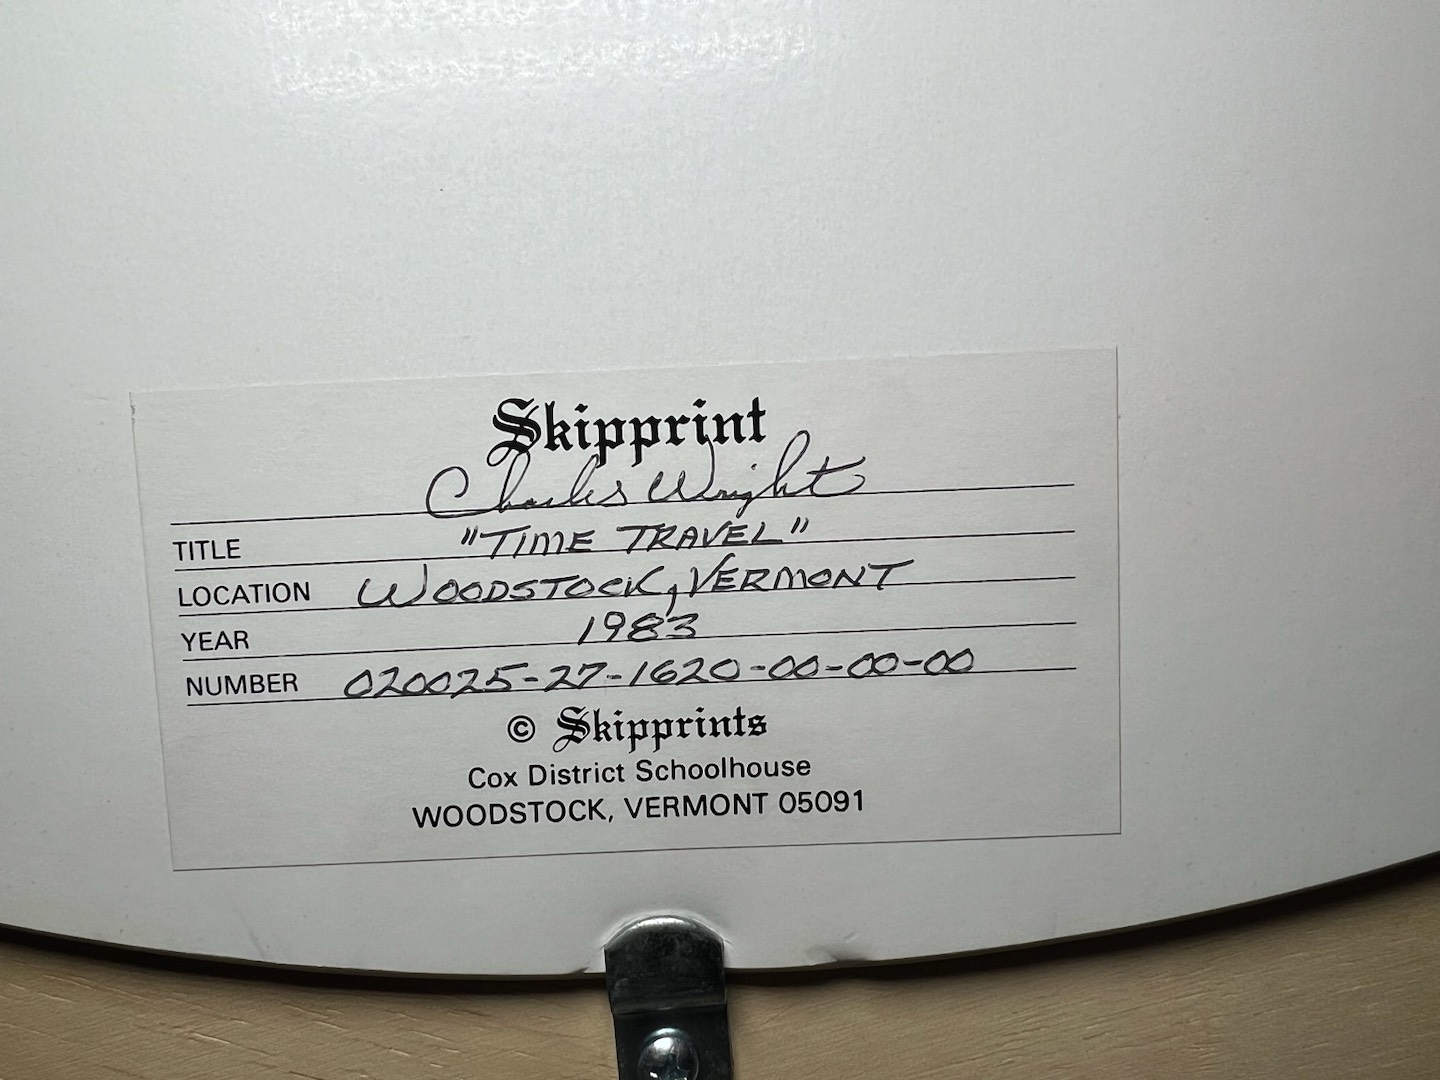 Skipprint
Charles Wright
TITLE "TIME TRAVEL"
LOCATION WOODSTOCK, VERMONT
YEAR 1983
NUMBER 020025-27-1620-00-00-00
© Skipprints
Cox District Schoolhouse
WOODSTOCK, VERMONT 05091